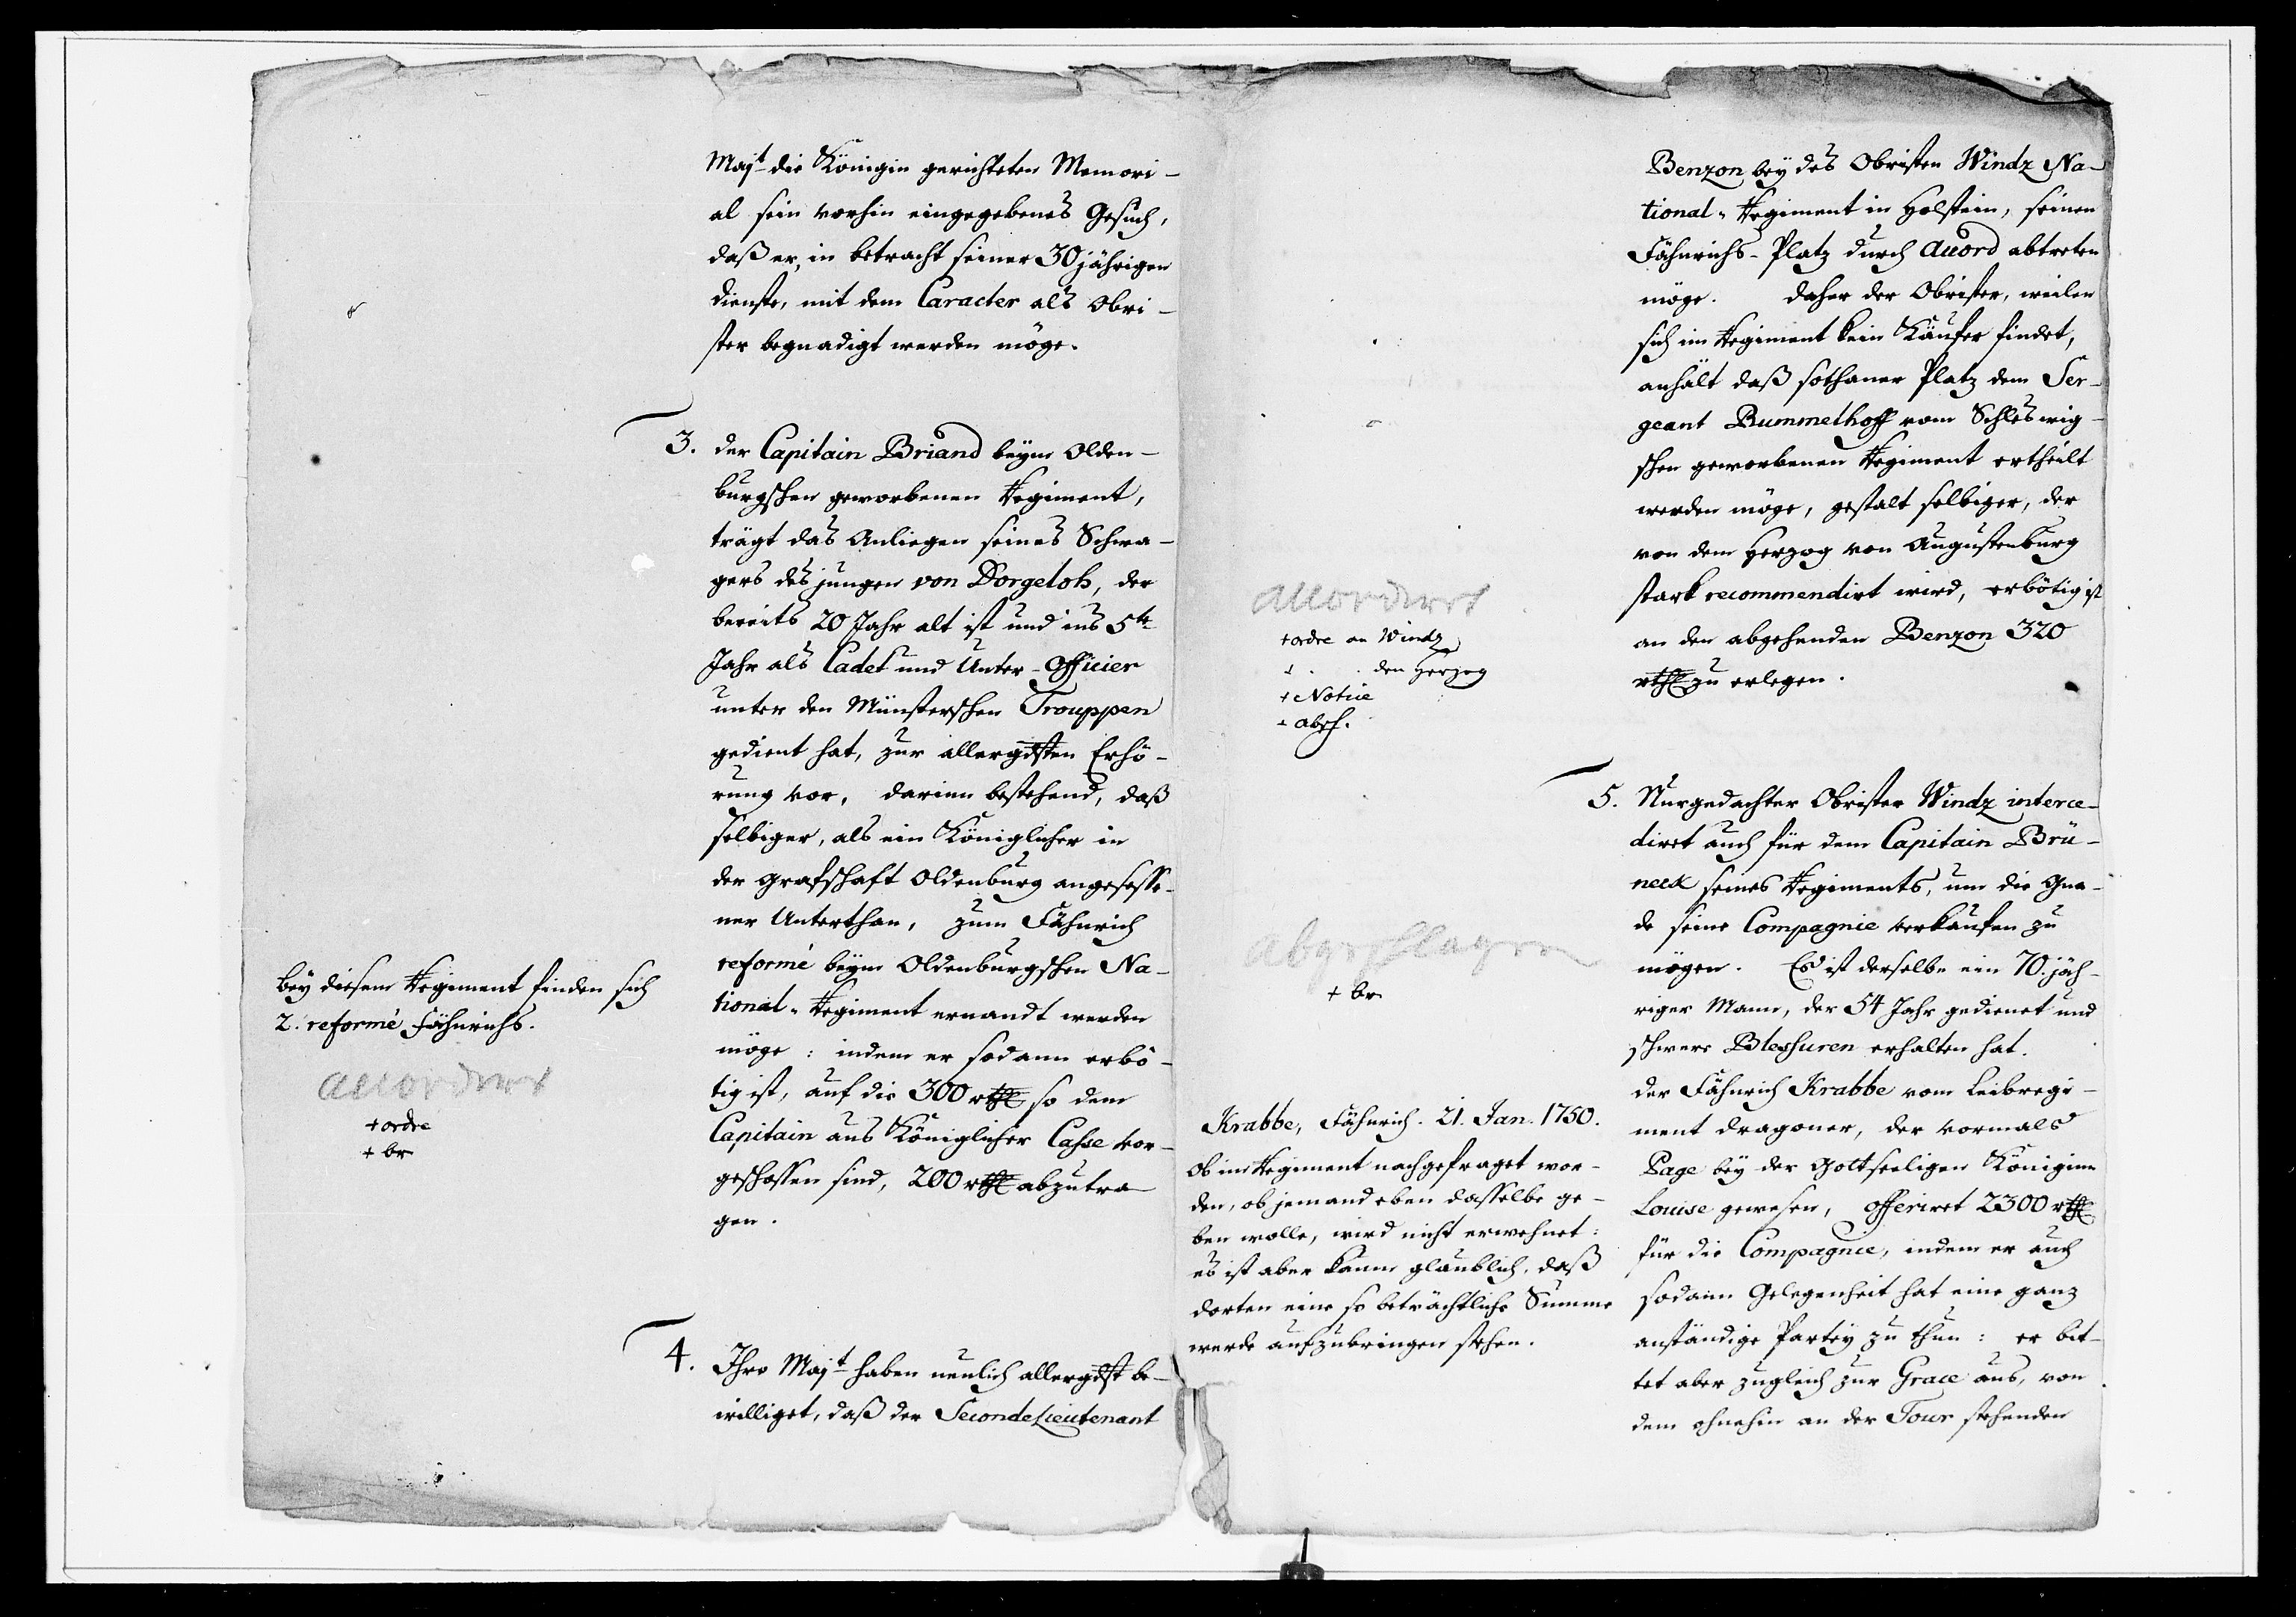 Majt die Königin gerichteten Memori-
al sein vorhin eingegebenes Gesuch,
daß er, in betracht seiner 30jährigen
Dienste, mit dem Caracter als Obri-
ster begnadigt werden möge.
3. der Capitain Briand beym Olden-
burgschen geworbenen Regiment,
trägt das Anliegen seines Schwa-
gers des jungen von Dorgeloh, der
bereits 20 Jahr alt ist und ins 5te
Jahr als Cadet und Unter-Officier
unter den Münsterschen Trouppen
gedient hat, zur allergdsten Erhö-
rung vor, darinn bestehend, daß
selbiger, als ein Königlicher in
der Grafschaft Oldenburg angesesse-
ner Unterthan, zum Fähnrich
reformé beym Oldenburgschen Na-
tional-Regiment ernandt werden
möge: indem er sodann erbö-
tig ist, auf die 300 rthl so dem
Capitain aus Königlicher Casse vor-
geschossen sind, 200 rthl abzutra-
gen.
bey diesem Regiment finden sich
2. reformé Fähnrichs.
accordirt
+ ordre
+ br
4. Ihro Majt haben neulich allergdst be-
williget, daß der Seconde Lieutenant
Benzon bey des Obristen Windz Na-
tional-Regiment in Holstein, seinen
Fähnrichs-Platz durch Accord abtreten
möge. Daher der Obrister, weilen
sich im Regiment kein Käufer findet,
anhält daß sothaner Platz dem Ser-
geant Bummelhoff vom Schleswig-
schen geworbenen Regiment ertheilt
werden möge, gestalt selbiger, der
von dem Herzog von Augustenburg
stark recommendirt wird, erbötig ist
an den abgehenden Benzon 320
rthl zu erlegen.
accordirt
+ ordre an Windz
+ . . den Herzog
+ Notice
+ absch.
5. Nurgedachter Obrister Windz interce-
diret auch für dem Capitain Brü-
neck seines Regiments, um die Gna-
de seine Compagnie verkaufen zu
mögen. Es ist derselbe ein 70.jäh-
riger Mann, der 54 Jahr gedienet und
schwere Blessuren erhalten hat.
der Fähnrich Krabbe vom Leibregi-
ment Dragoner, der vormals
Page bey der Gottseeligen Königinn
Louise gewesen, offeriret 2300 rthl
für die Compagnie, indem er auch
sodann Gelegenheit hat eine ganz
anständige Partey zu thun: er bit-
tet aber zugleich zur Grace aus, von
dem ohnehin an der Tour stehenden
abgeschlagen
+ br
Krabbe, Fähnrich. 21. Jan. 1750.
Ob im Regiment nachgefraget wor-
den, ob jemand eben dasselbe ge-
ben wolle, wird nicht erwehnet:
es ist aber kaum glaublich, daß
dorten eine so beträchtliche Summe
werde aufzubringen stehen.